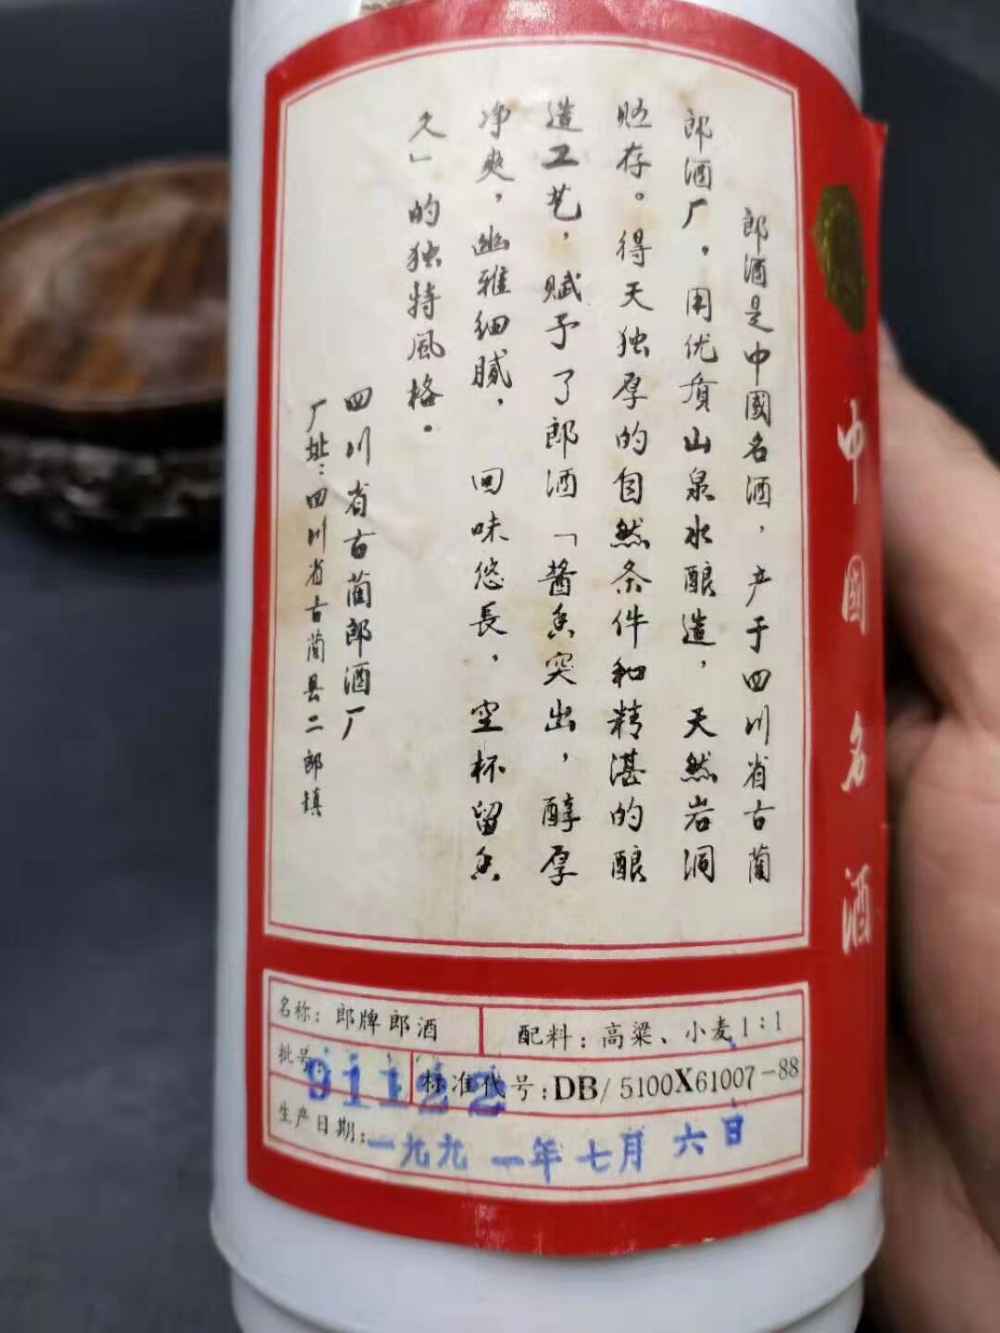 郎酒是中國名酒，产于四川省古蔺
郎酒厂。用优质山泉水酿造，天然岩洞
贮存。得天独厚的自然条件和精湛的酿
造工艺，赋予了郎酒「酱香突出，醇厚
净爽，幽雅细腻，回味悠長，空杯留香
久」的独特風格。
四川省古蔺郎酒厂
厂址：四川省古蔺县二郎镇
中國名酒
名称：郎牌郎酒
配料：高粱、小麦1：1
批号：91122
标准代号：DB/5100X61007-88
生产日期：一九九一年七月六日